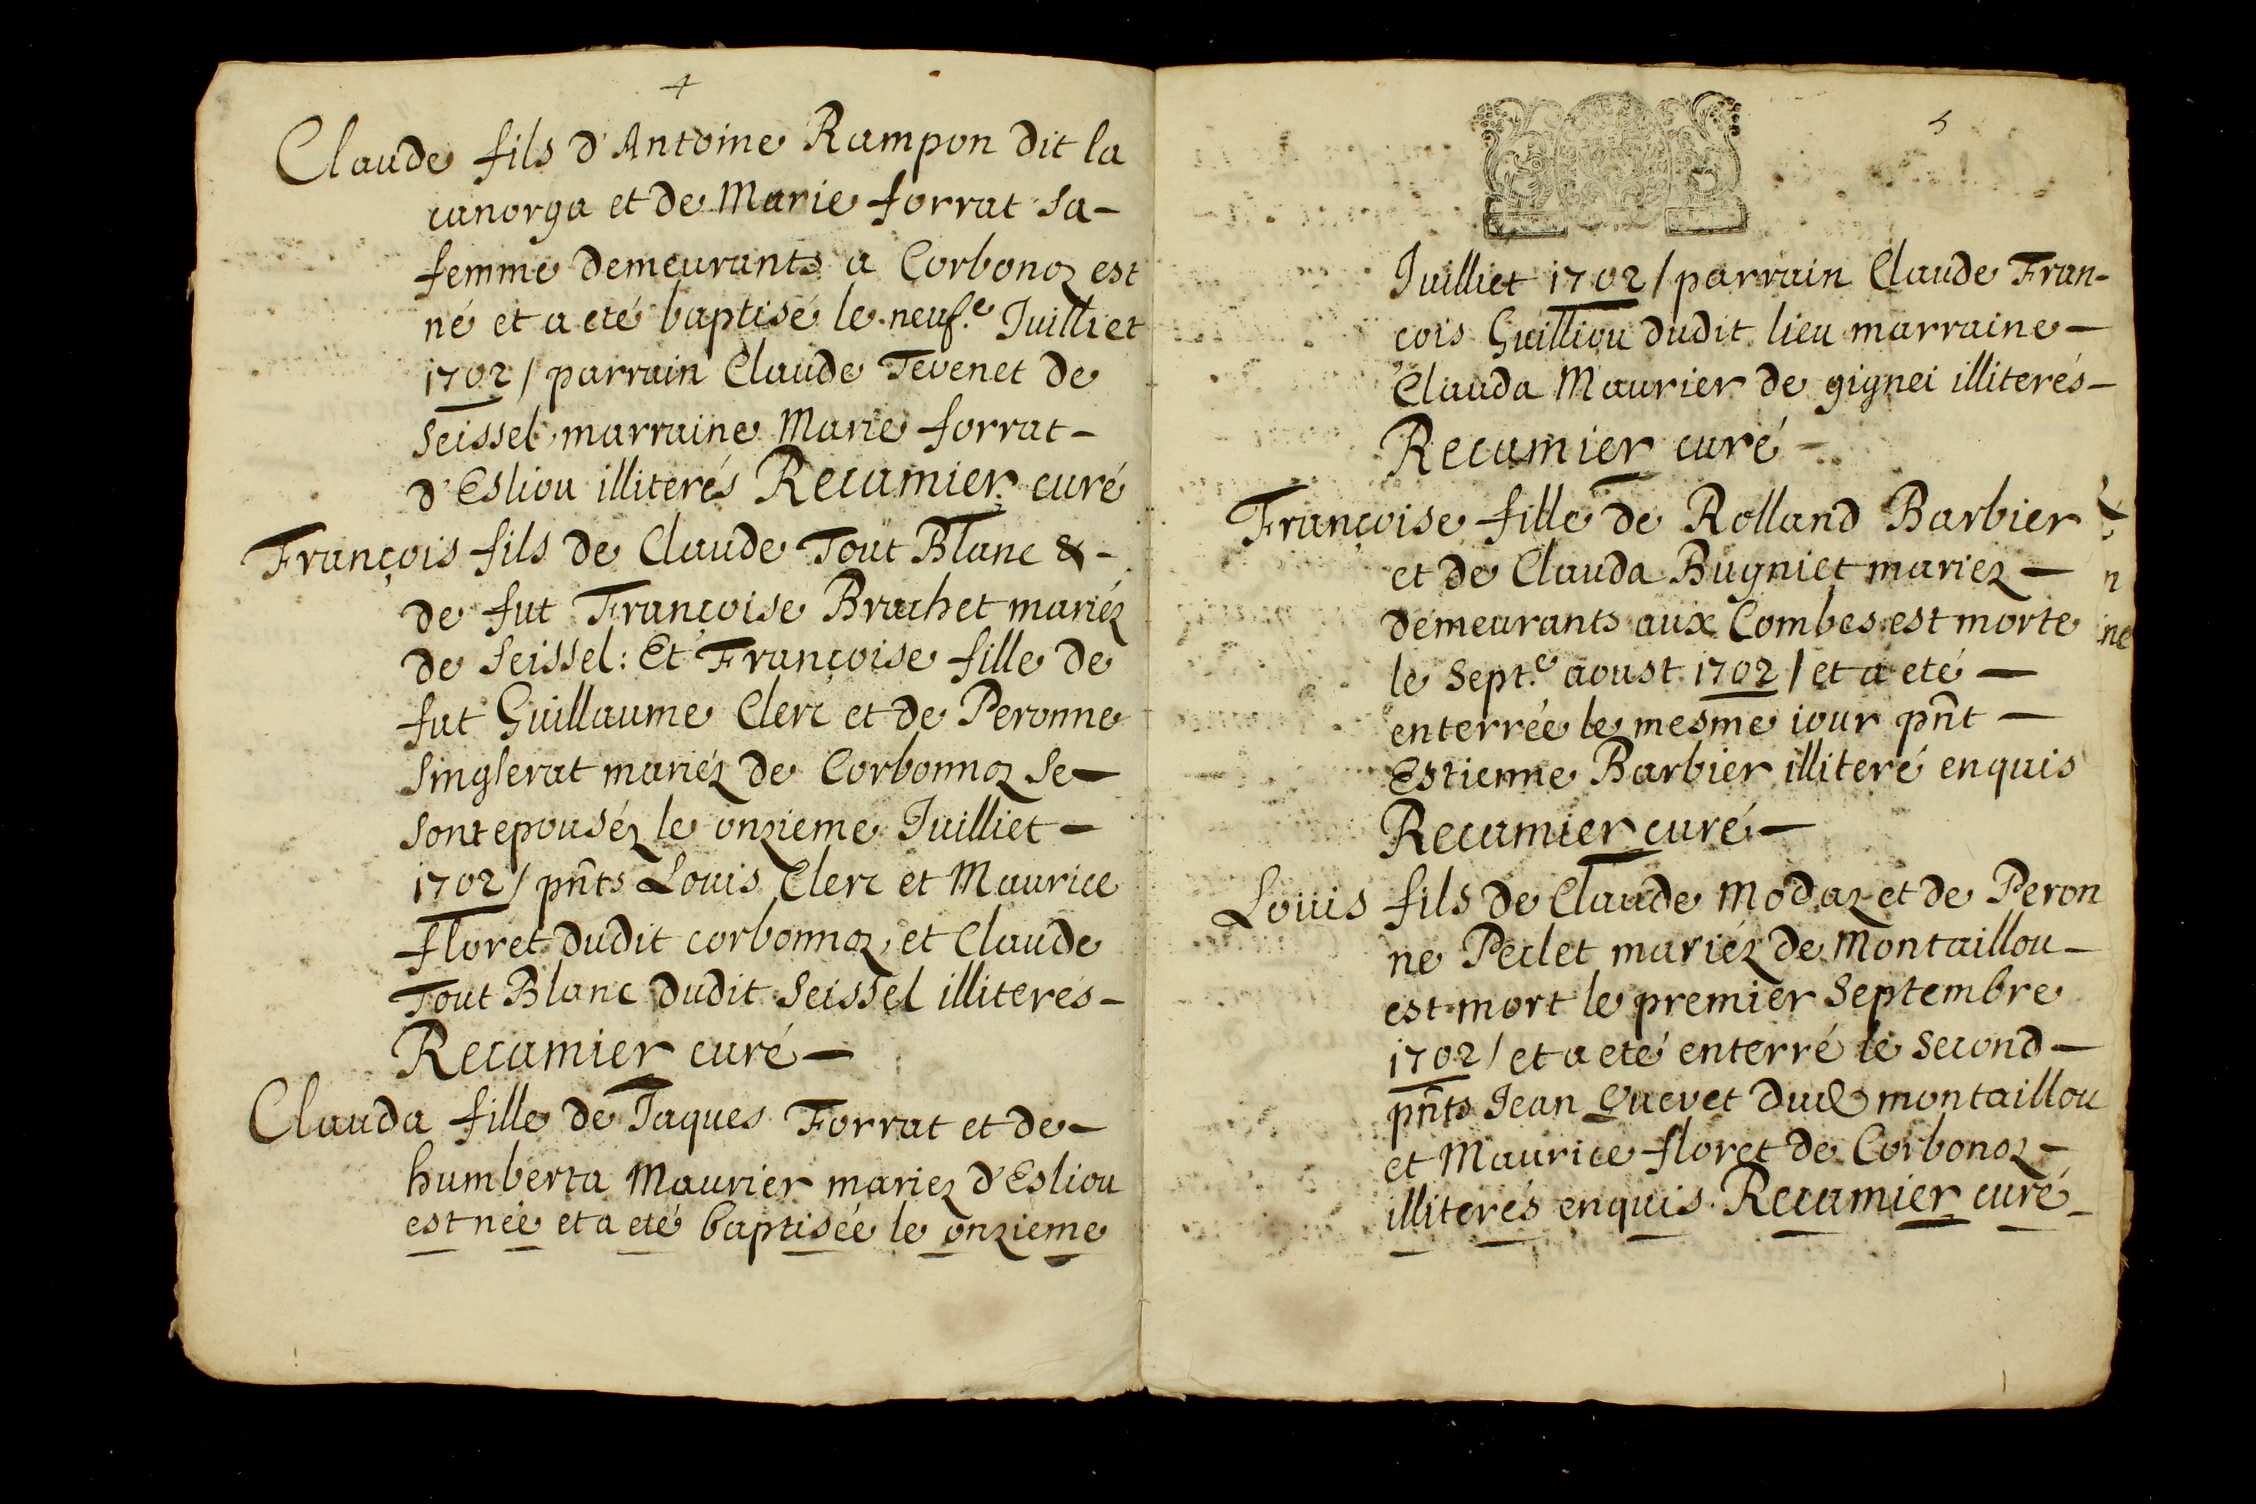 4
Claude fils d'Antoine Rampon dit la
canorga et de Marie forrat sa-
femme demeurants a Corbonoz est
né et a eté baptisé le neuf.e Juilliet
1702 / parrain Claude Tevenet de
Seissel marraine Marie forrat -
d'Esliou illiterés Recamier curé
François fils de Claude Tout Blanc & -
de fut Françoise Brachet mariéz
de Seissel : Et Françoise fille de
fut Guillaume Clerc et de Peronne
Singlerat mariéz de Corbonnoz se -
sont epouséz le onzieme Juilliet -
1702 / pñts Louis Clerc et Maurice
floret dudit corbonnoz, et Claude
Tout Blanc dudit Seissel illiterés -
Recamier curé -
Clauda fille de Jaques Forrat et de -
humberta Maurier mariez d'Esliou
est née et a eté baptisée le onzieme
5
Juilliet 1702 / parrain Claude Fran-
cois Guilliou dudit lieu marraine -
Clauda Maurier de gignei illiterés -
Recamier curé -
Françoise fille de Rolland Barbier
et de Clauda Bugniet mariez -
demeurants aux Combes est morte
le sept.e aoust 1702 / et a eté -
enterrée le mesme iour pñt -
Estienne Barbier illiteré enquis
Recamier curé -
Louis fils de Claude Modaz et de Peron
ne Peclet mariéz de Montaillou -
est mort le premier Septembre
1702 / et a eté enterré le second -
pñts Jean Quevet dud montaillou
et Maurice floret de Corbonoz -
illiterés enquis Recamier curé -
n
ne